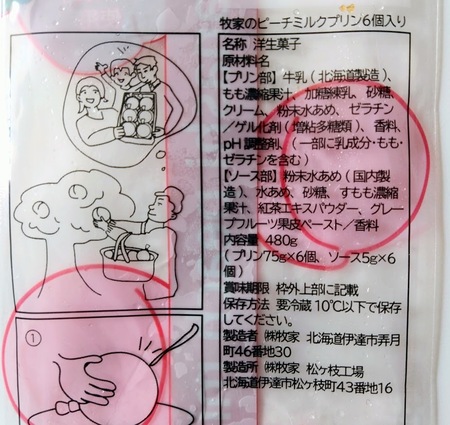 牧家のピーチミルクプリン6個入り
名称 洋生菓子
原材料名
【プリン部】牛乳(北海道製造)、
もも濃縮果汁、加糖練乳、砂糖、
クリーム、粉末水あめ、ゼラチン
/ゲル化剤(増粘多糖類)、香料、
pH調整剤、(一部に乳成分・もも・
ゼラチンを含む)
【ソース部】粉末水あめ(国内製
造)、水あめ、砂糖、すもも濃縮
果汁、紅茶エキスパウダー、グレー
プフルーツ果皮ペースト/香料
内容量 480g
(プリン75g×6個、ソース5g×6
個)
賞味期限 枠外上部に記載
保存方法 要冷蔵10℃以下で保存
してください。
製造者 ㈱牧家 北海道伊達市弄月
町46番地30
製造所 ㈱牧家 松ヶ枝工場
北海道伊達市松ヶ枝町43番地16
①